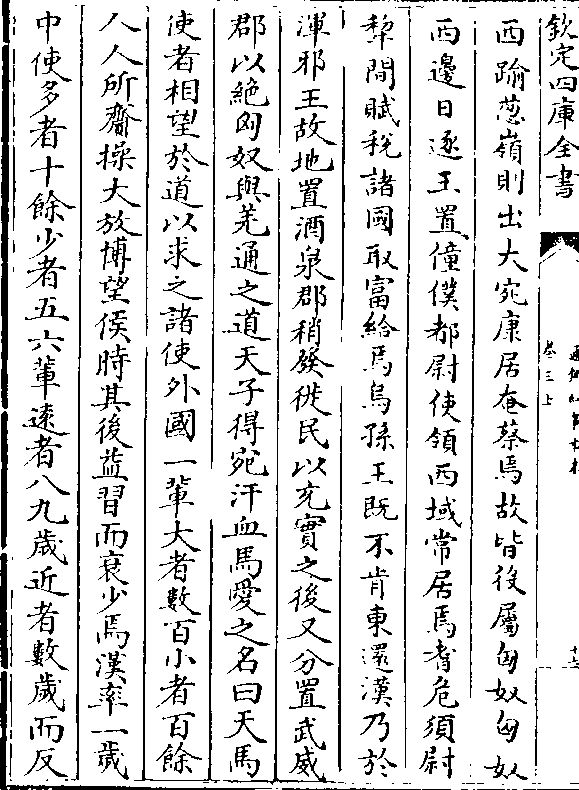 欽定四庫全書
卷三上
西踰葱嶺則出大宛康居奄蔡焉故皆役屬匈奴匈奴
西邊日逐王置僮僕都尉使領西域常居焉耆危須尉
犂間賦税諸國取富給焉烏孫王既不肯東還漢乃於
渾邪王故地置酒泉郡稍發徙民以充實之後又分置武威
郡以絶匈奴與羌通之道天子得宛汗血馬愛之名曰天馬
使者相望於道以求之諸使外國一輩大者數百小者百餘
人人所齎操大放博望侯時其後益習而衰少焉漢率一歲
中使多者十餘少者五六輩遠者八九歲近者數歲而反